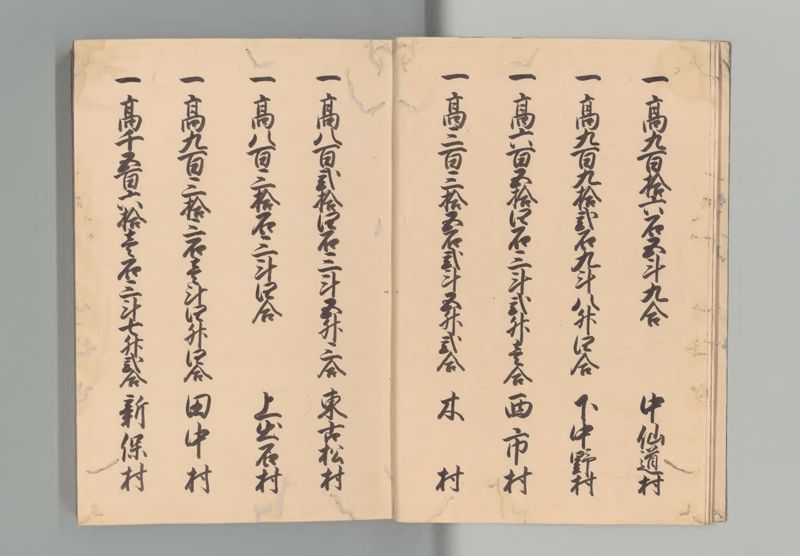 一 髙九百拾六石五斗九合 中仙道村
一 髙九百九拾弐石九斗八升四合 下中野村
一 髙六百五拾四石三斗弐升壱合 西市村
一 髙三百三拾五石弐斗五升弐合 木村
一 髙八百弐拾四石三斗五升三合 東古松村
一 髙八百三拾石三斗四合 上出石村
一 髙九百三拾三石壱斗四升四合 田中村
一 髙千五百六拾壱石三斗七升弐合 新保村